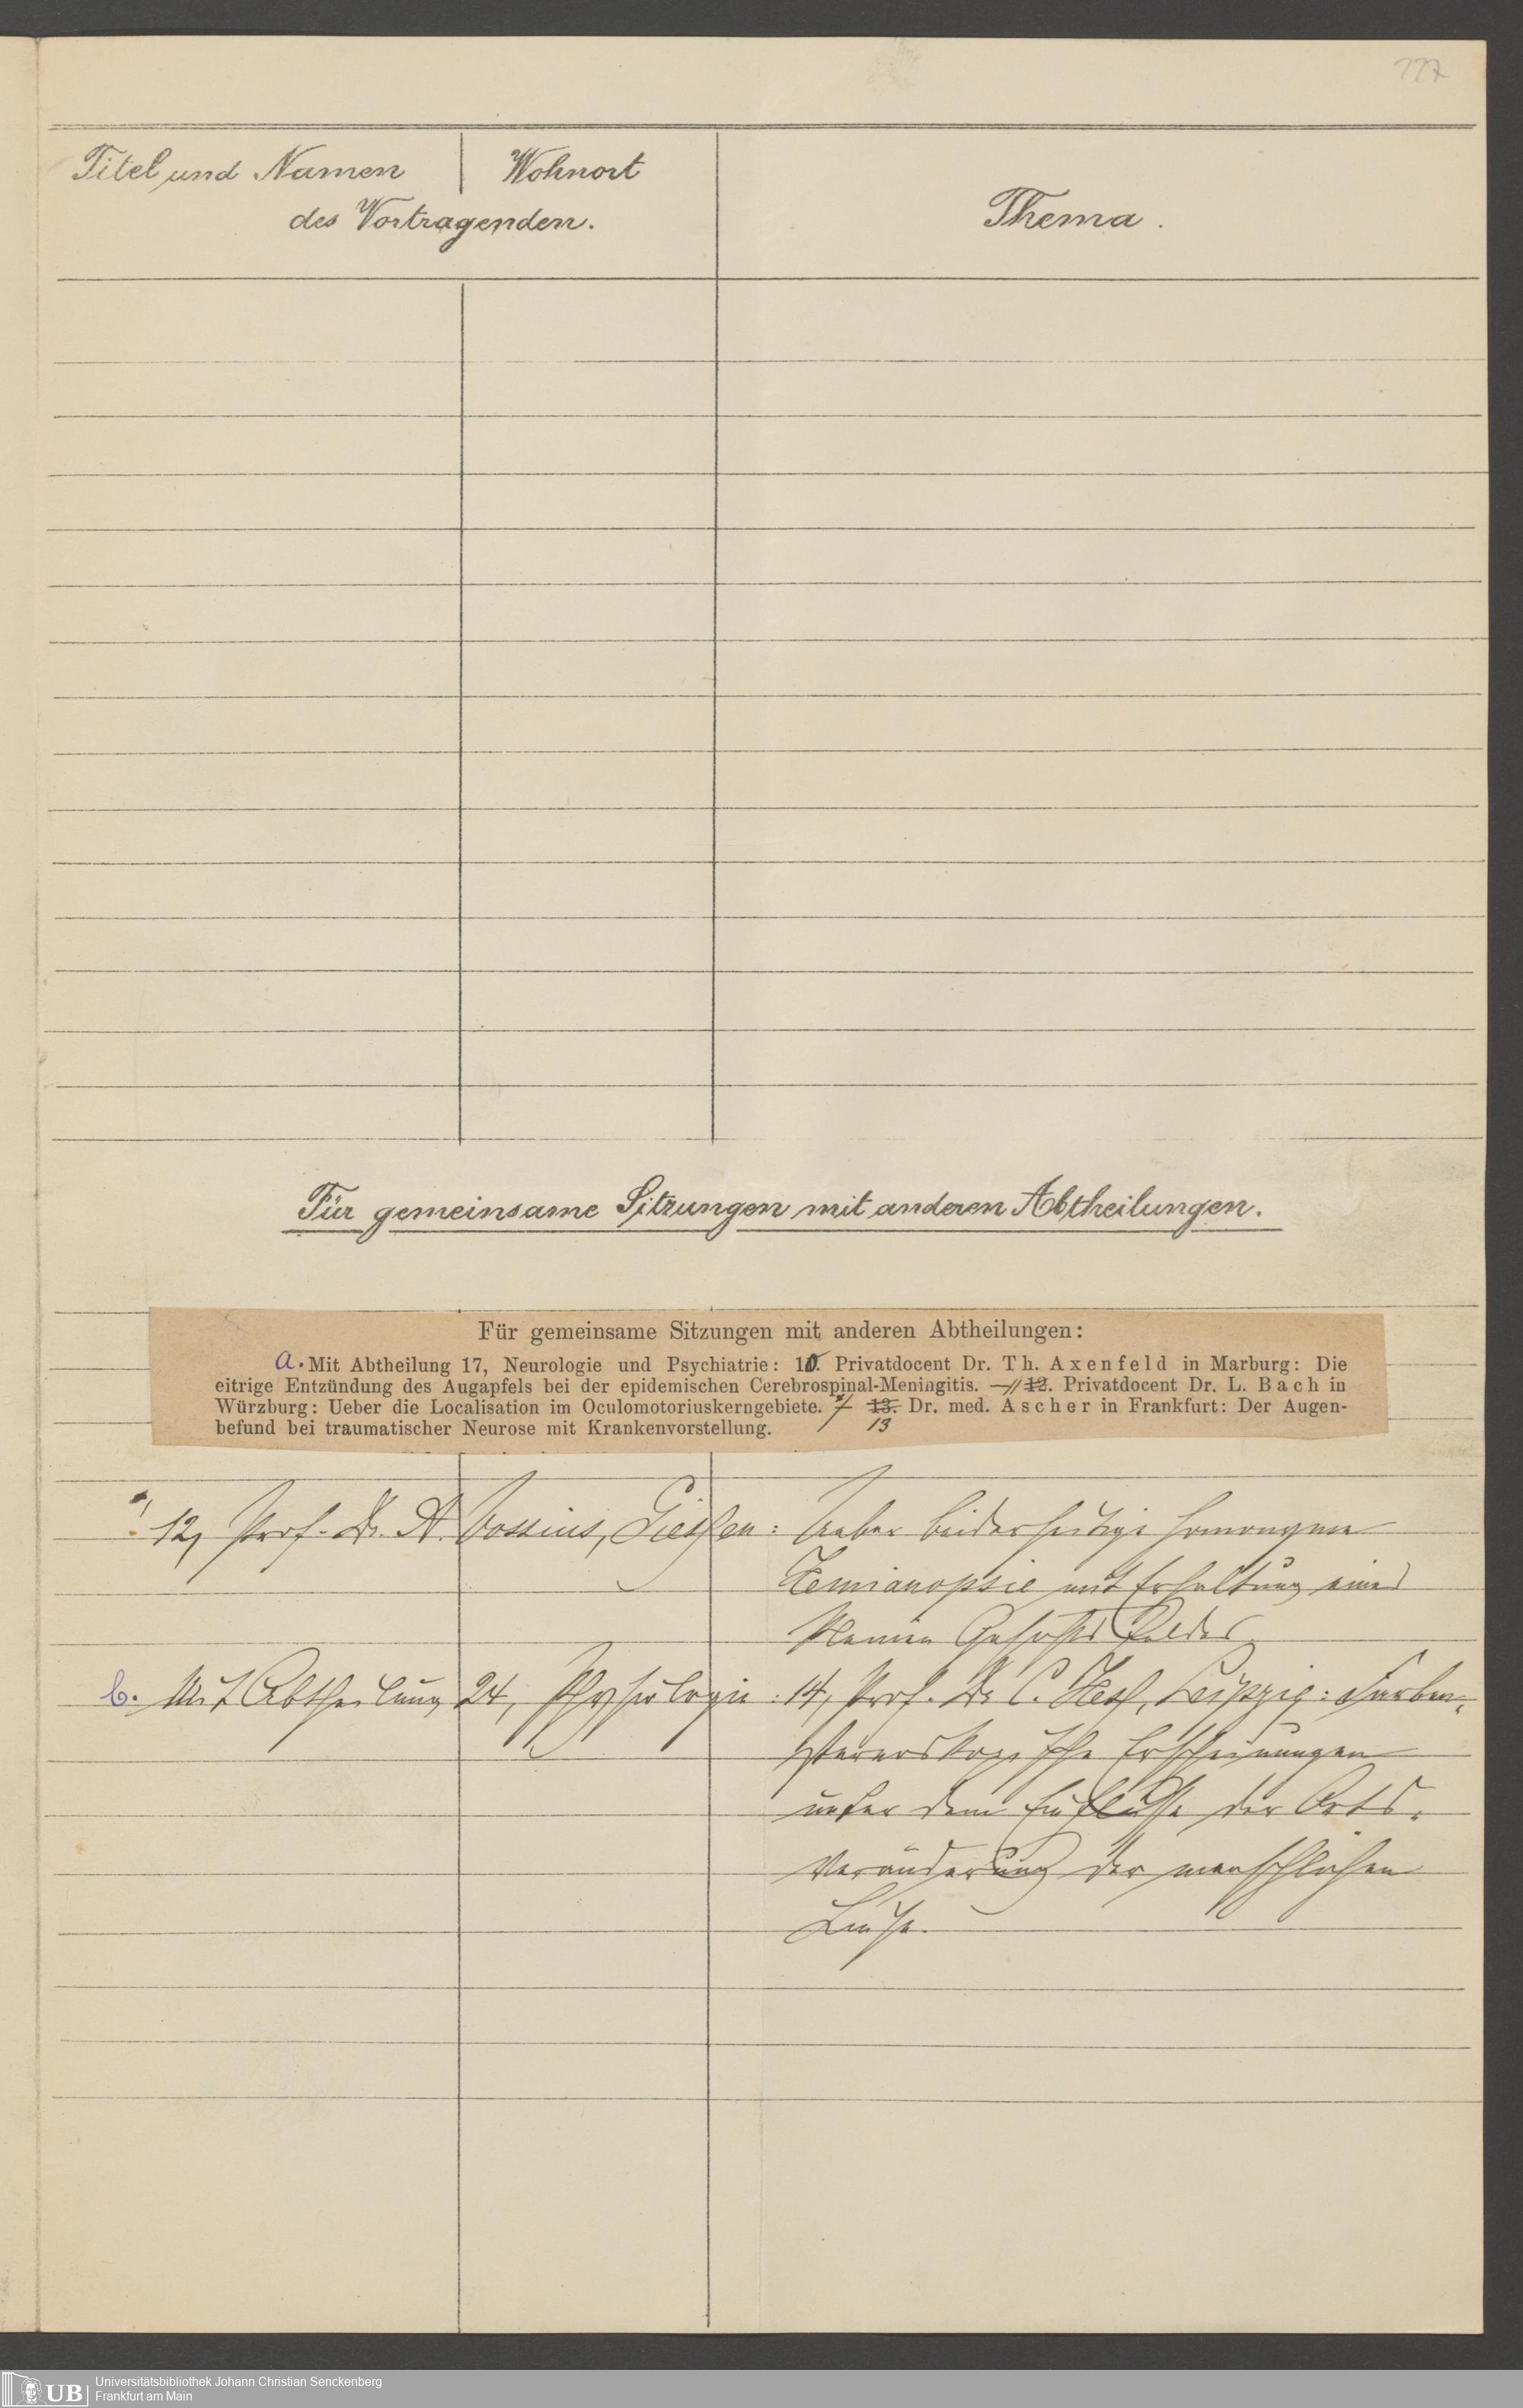 117
Titel und Namen
Wohnort
des Vortragenden.
Thema.
Für gemeinsame Sitzungen mit anderen Abtheilungen.
Für gemeinsame Sitzungen mit anderen Abtheilungen:
a. Mit Abtheilung 17, Neurologie und Psychiatrie: 10. Privatdocent Dr. Th. Axenfeld in Marburg: Die
eitrige Entzündung des Augapfels bei der epidemischen Cerebrospinal-Meningitis. — 11 12. Privatdocent Dr. L. Bach in
Würzburg: Ueber die Localisation im Oculomotoriuskerngebiete. 13. Dr. med. Ascher in Frankfurt: Der Augen-
13
befund bei traumatischer Neurose mit Krankenvorstellung.
12, Prof. Dr. A. Vossius, Giessen: Ueber beiderseitige homonyme
Hemianopsie mit Erhaltung eines
kleinen Gesichtsfeldes
b. Mit Abtheilung 24, Physiologie: 14, Prof. Dr. C. Hess, Leipzig: Farben-
stereoskopische Erscheinungen
unter dem Einflusse der Orts-
veränderung der menschlichen
Linse.
UB
Universitätsbibliothek Johann Christian Senckenberg
Frankfurt am Main